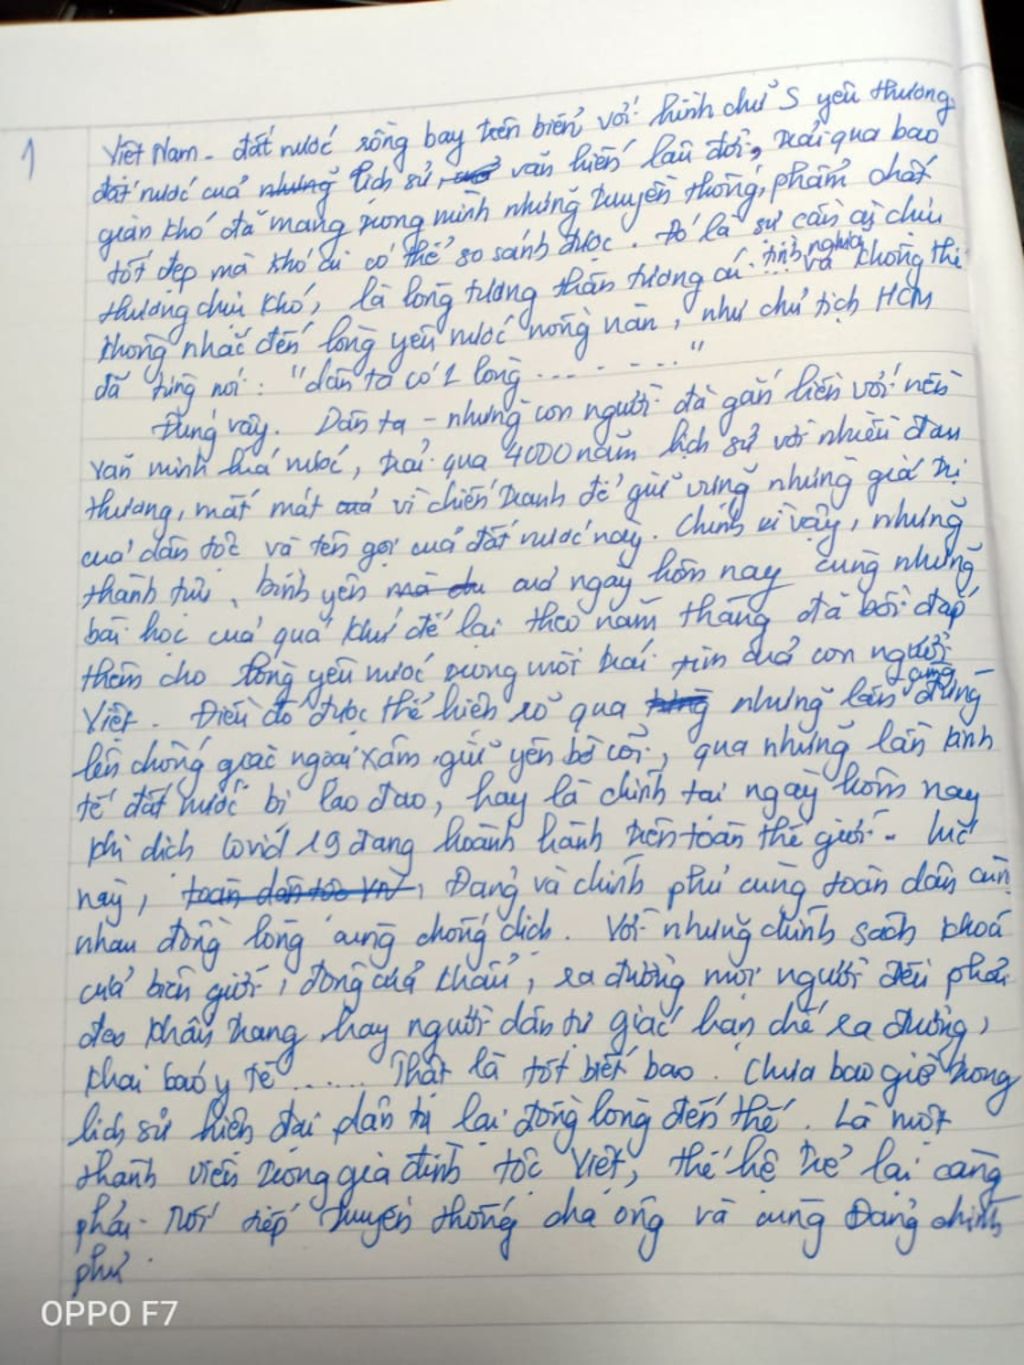 1
Việt Nam - đất nước rồng bay trên biển với hình chữ S yêu thương,
đất nước của những lịch sử, văn hiến lâu đời, trải qua bao
gian khó đã mang trong mình những truyền thống, phẩm chất
tốt đẹp mà khó ai có thể so sánh được. Đó là sự cần cù chịu
thương chịu khó, là lòng tương thân tương ái, tình nghĩa ... và không thể
không nhắc đến lòng yêu nước nồng nàn, như chủ tịch HCM
đã từng nói: "dân ta có 1 lòng ........."
Đúng vậy. Dân ta - những con người đã gắn liền với nền
văn minh lúa nước, trải qua 4000 năm lịch sử với nhiều đau
thương, mất mát vì chiến tranh để giữ vững những giá trị
của dân tộc và tên gọi của đất nước này. Chính vì vậy, những
thành tựu, bình yên mà của ngày hôm nay cùng những
bài học của quá khứ để lại theo năm tháng đã bồi đắp
thêm cho lòng yêu nước trong mỗi trái tim của con người
Việt. Điều đó được thể hiện rõ qua những lần cùng đứng
lên chống giặc ngoại xâm giữ yên bờ cõi, qua những lần kinh
tế đất nước bị lao đao, hay là chính tại ngày hôm nay
khi dịch Covid 19 đang hoành hành trên toàn thế giới - lúc
này, toàn dân tộc VN, Đảng và chính phủ cùng toàn dân cùng
nhau đồng lòng cùng chống dịch. Với những chính sách khoá
cửa biên giới, đóng cửa khẩu, ra đường mọi người đều phải
đeo khẩu trang hay người dân tự giác hạn chế ra đường,
khai báo y tế ...... Thật là tốt biết bao. Chưa bao giờ trong
lịch sử hiện đại dân ta lại đồng lòng đến thế. Là một
thành viên trong gia đình tộc Việt, thế hệ trẻ lại càng
phải nối tiếp truyền thống cha ông và cùng Đảng chính
phủ.
OPPO F7